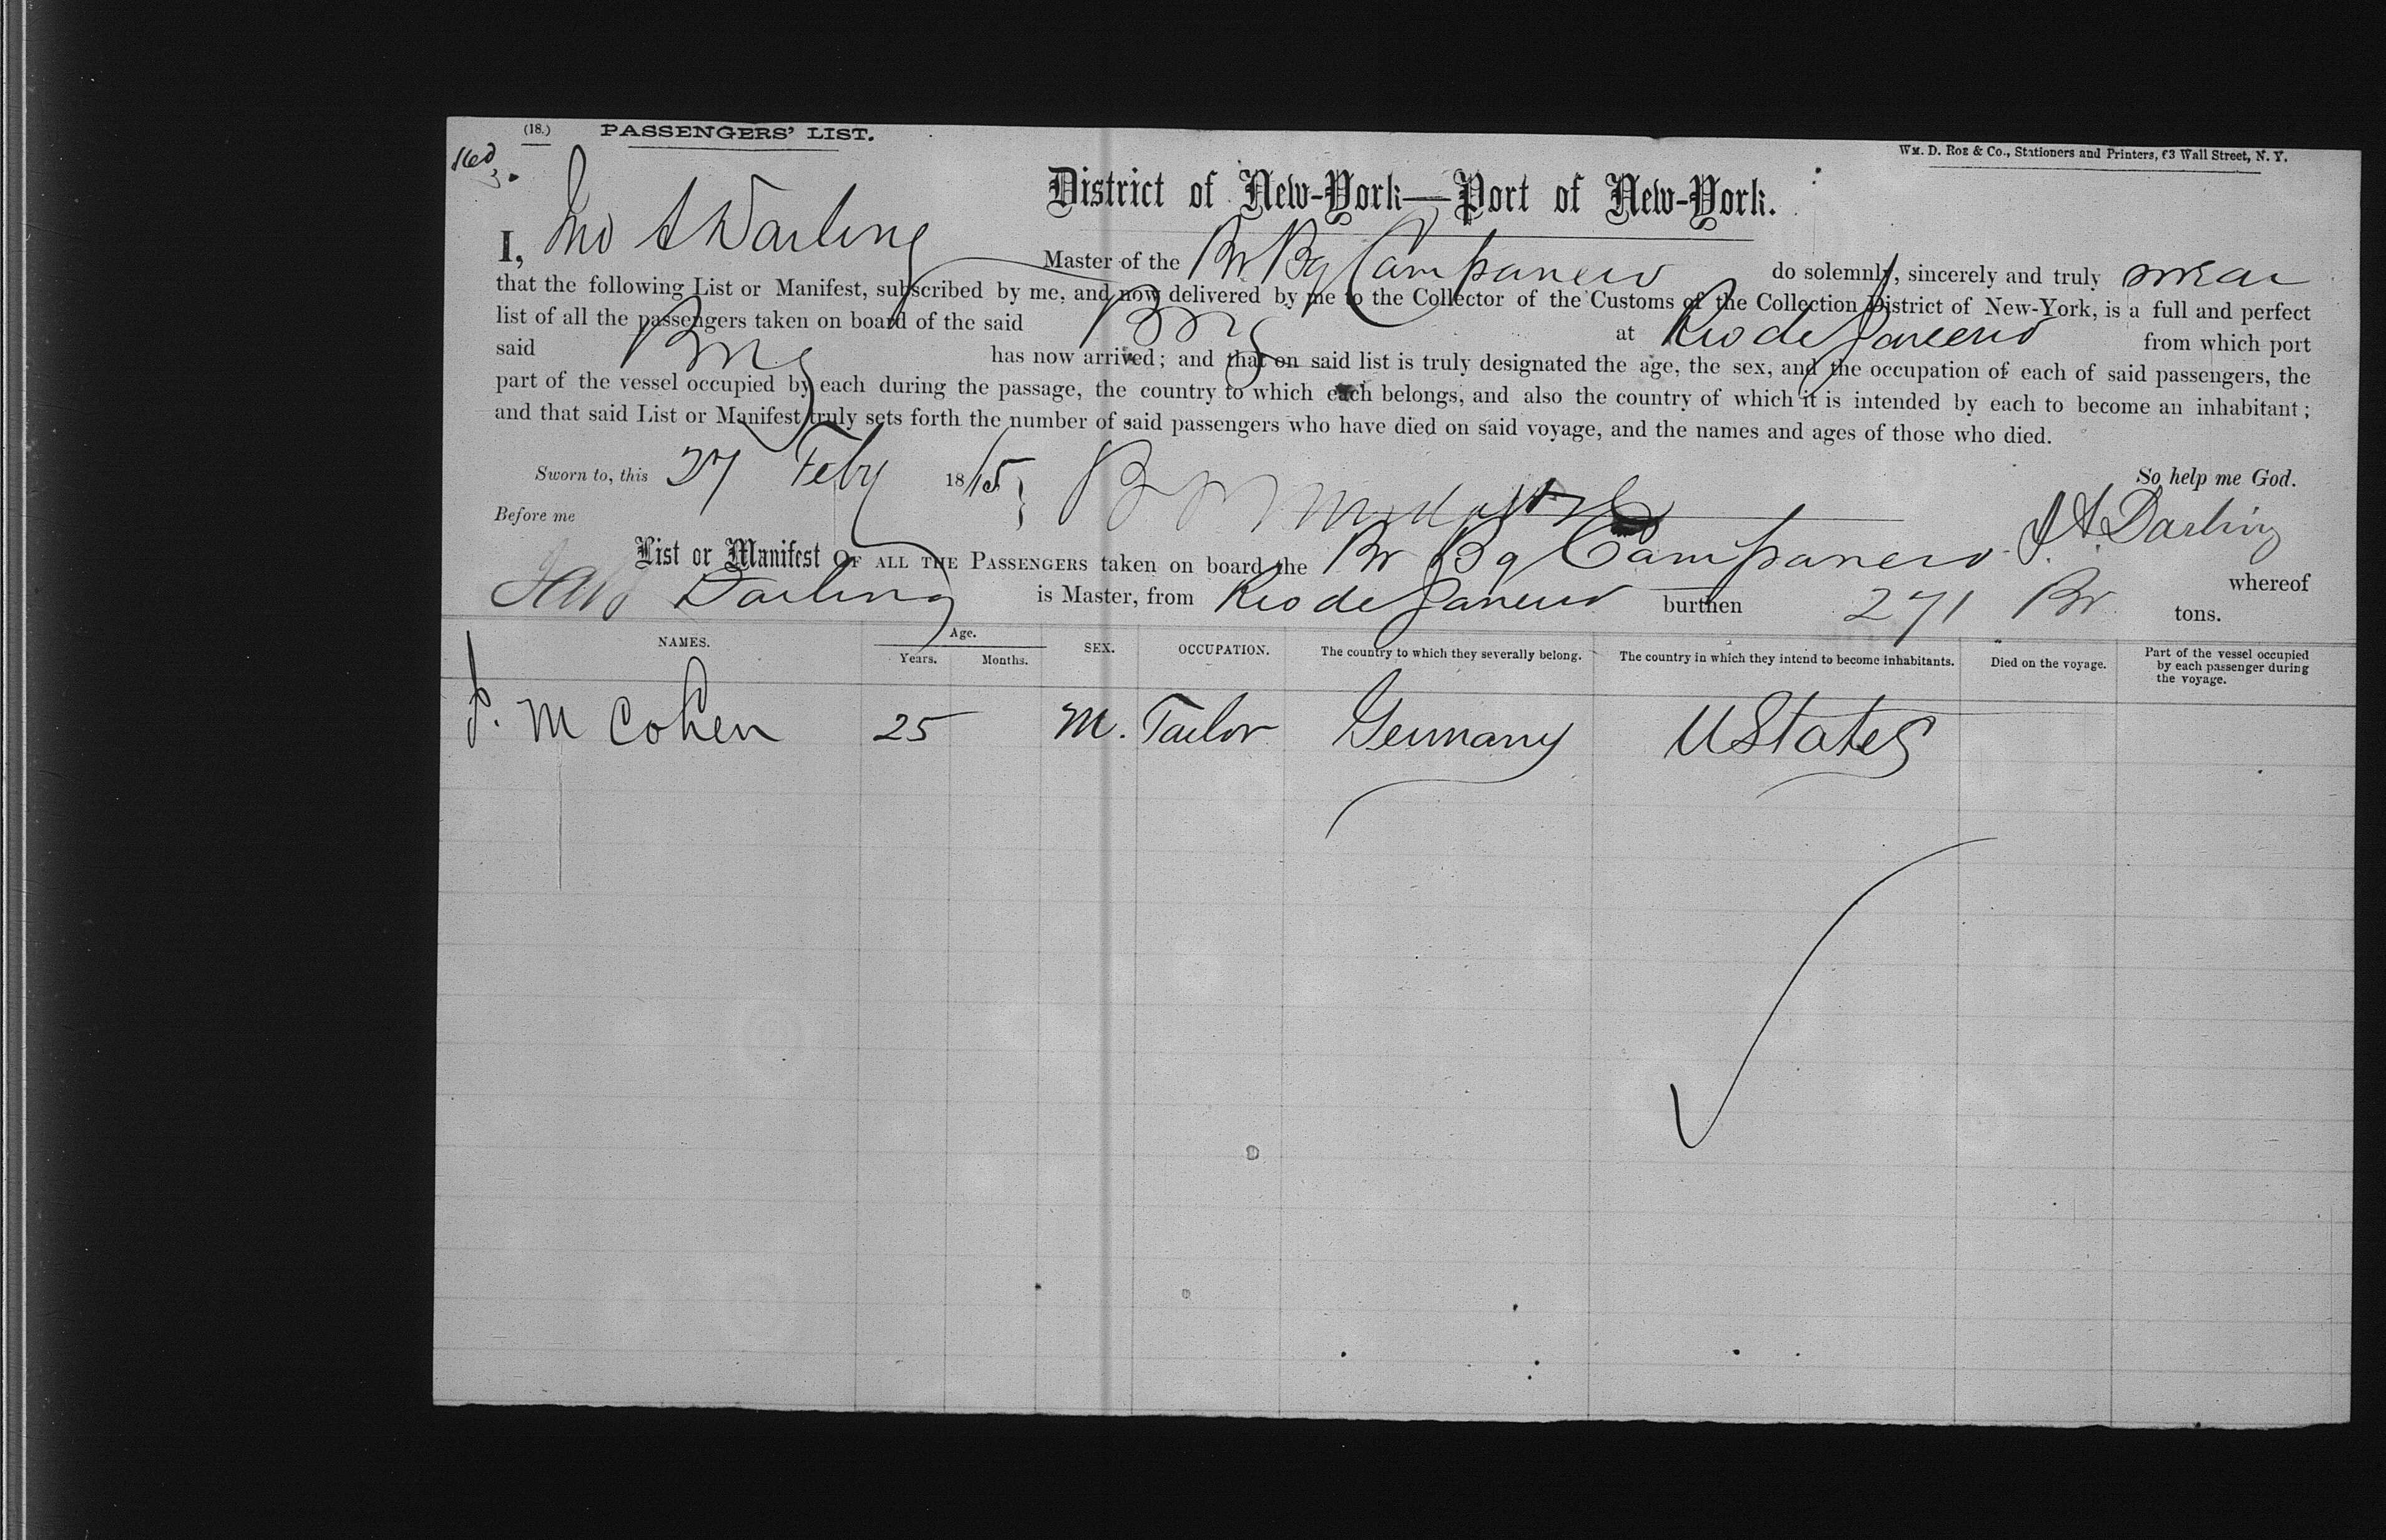 (18.) PASSENGERS' LIST.
WM. D. ROE & CO., Stationers and Printers, 63 Wall Street, N. Y.
District of New-York—Port of New-York.
I, Jno A Darling Master of the Br Bg Campanero do solemnly, sincerely and truly swear
that the following List or Manifest, subscribed by me, and now delivered by me to the Collector of the Customs of the Collection District of New-York, is a full and perfect
list of all the passengers taken on board of the said Brig at Rio de Janeiro from which port
said Brig has now arrived; and that on said list is truly designated the age, the sex, and the occupation of each of said passengers, the
part of the vessel occupied by each during the passage, the country to which each belongs, and also the country of which it is intended by each to become an inhabitant;
and that said List or Manifest truly sets forth the number of said passengers who have died on said voyage, and the names and ages of those who died.
Sworn to, this 27 Feby 18 So help me God.
Before me J A Darling
List or Manifest OF ALL THE PASSENGERS taken on board the Br Bg Campanero whereof
Darling is Master, from Rio de Janeiro burthen 271 Br tons.
NAMES. Age. Years. Months. SEX. OCCUPATION. The country to which they severally belong. The country in which they intend to become inhabitants. Died on the voyage. Part of the vessel occupied by each passenger during the voyage.
J. M Cohen 25 M. Tailor Germany U States